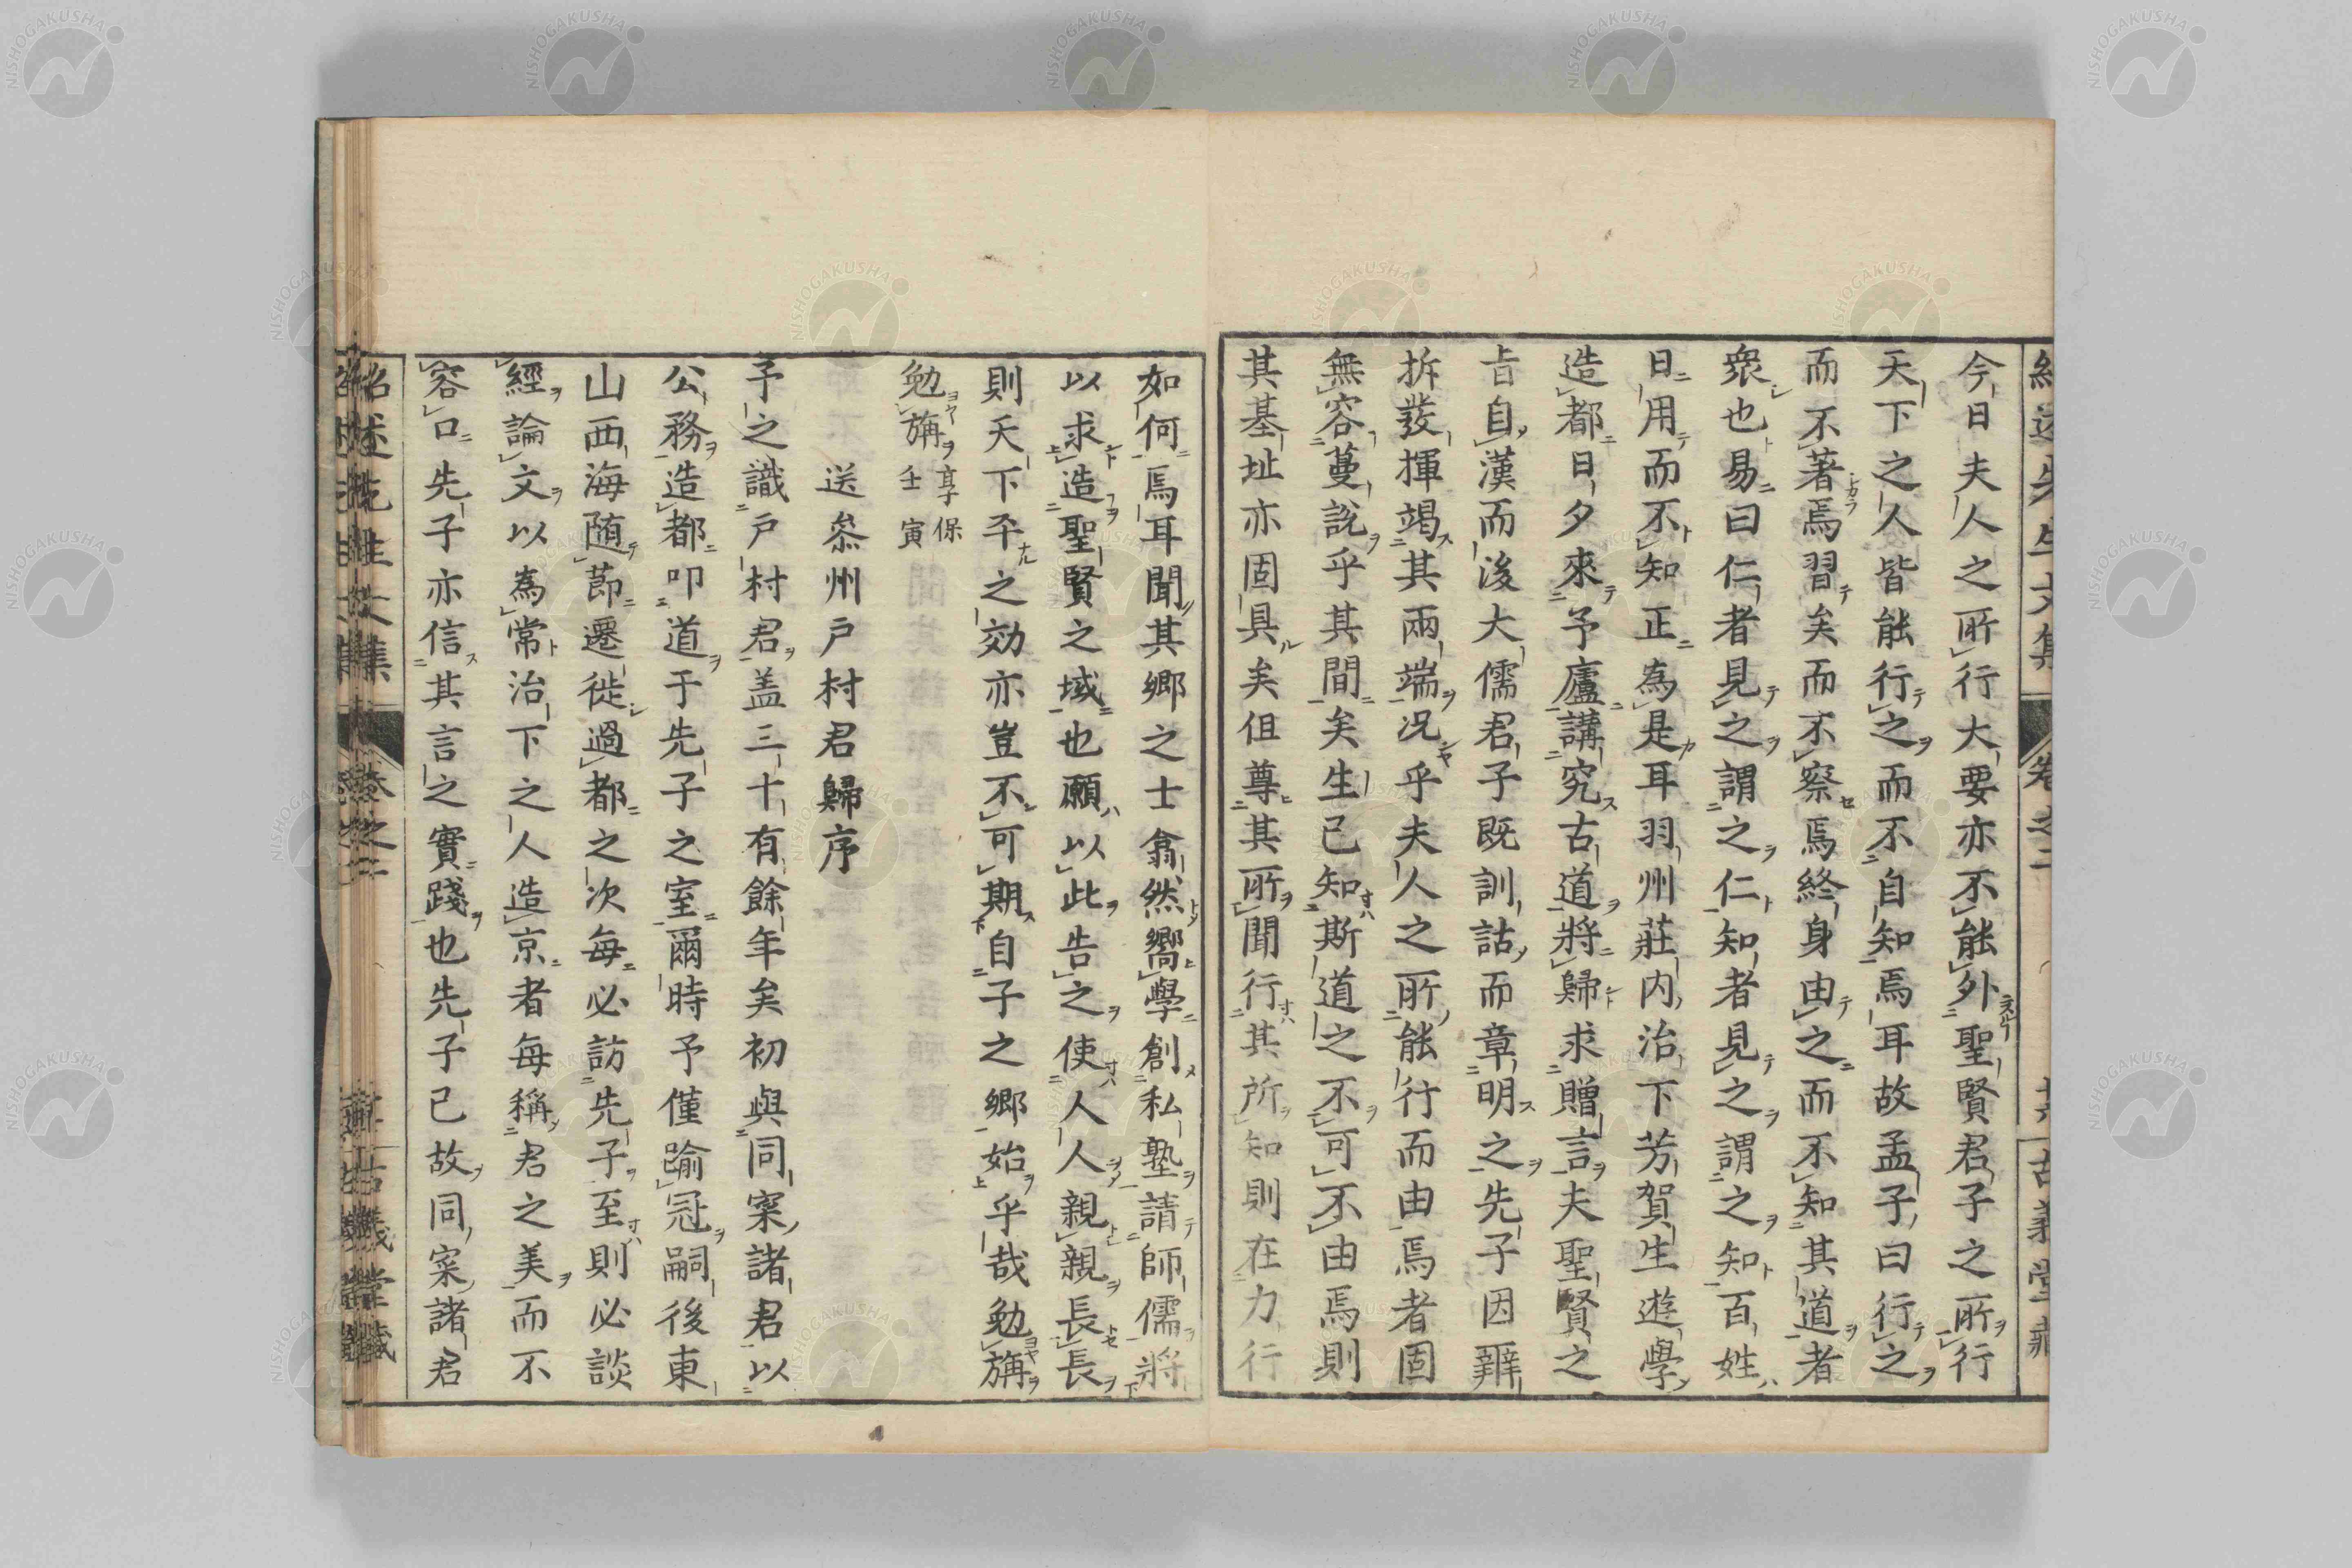 紹述先生文集 卷之二 十六 古義堂藏
今日夫人之所行大要亦不能外聖賢君子之所行
天下之人皆能行之而不自知焉耳故孟子曰行之
而不著焉習矣而不察焉終身由之而不知其道者
衆也易曰仁者見之謂之仁知者見之謂之知百姓
日用而不知正為是耳羽州莊内治下芳賀生遊學
造都日夕來予廬講究古道將歸求贈言夫聖賢之
旨自漢而後大儒君子既訓詁而章明之先子因辨
拆發揮竭其兩端况乎夫人之所能行而由焉者固
無容蔓說乎其間矣生已知斯道之不可不由焉則
其基址亦固具矣但尊其所聞行其所知則在力行
如何焉耳聞其鄉之士翕然嚮學創私塾請師儒將
以求造聖賢之域也願以此告之使人人親親長長
則天下平之効亦豈不可期自子之鄉始乎哉勉旃
勉旃 享保壬寅
送叅州戶村君歸序
予之識戶村君盖三十有餘年矣初與同寀諸君以
公務造都叩道于先子之室爾時予僅踰冠嗣後東
山西海随莭遷徙過都之次每必訪先子至則必談
經論文以為常治下之人造京者每稱君之美而不
容口先子亦信其言之實踐也先子已故同寀諸君
紹述先生文集 卷之二 古義堂藏